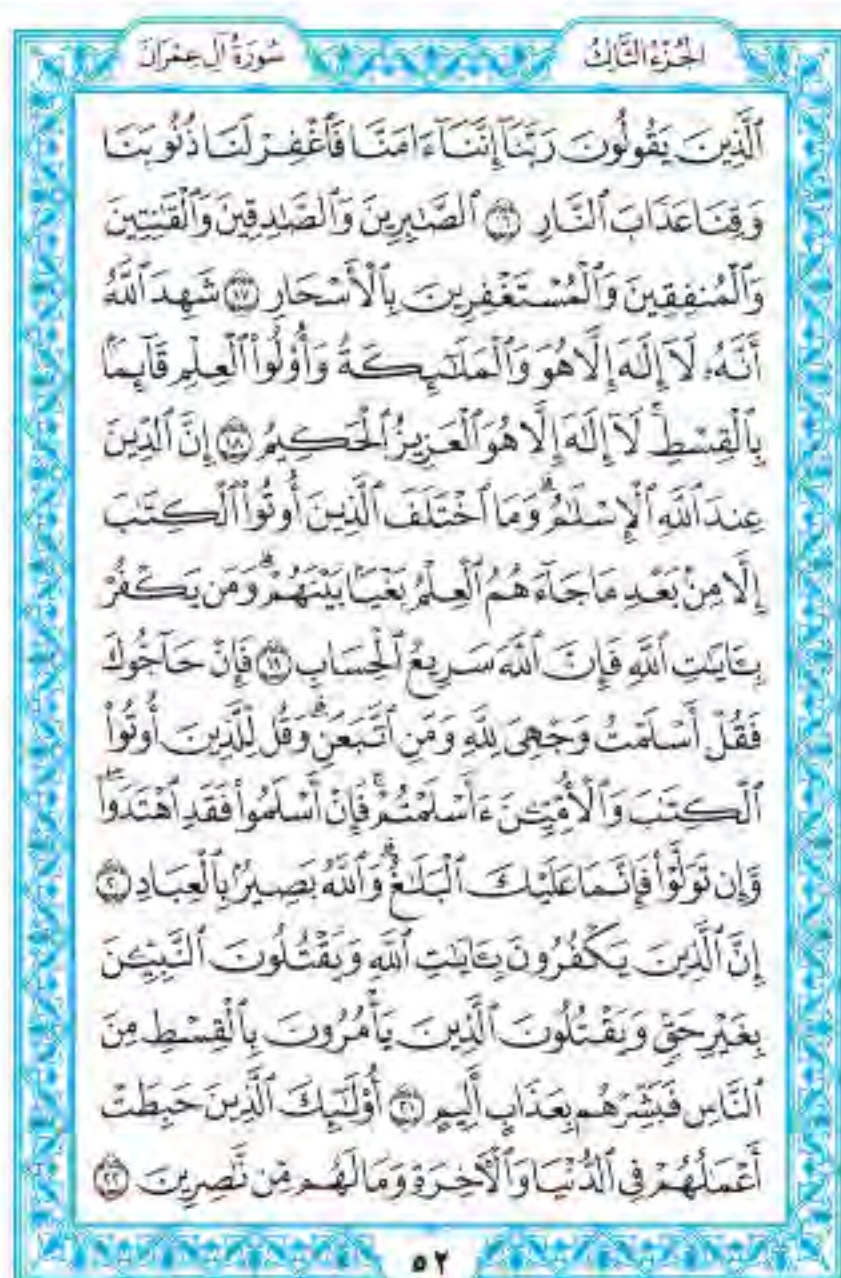 الجُزْءُ الثَّالِثُ
سُورَةُ آلِ عِمْرَانَ
ٱلَّذِينَ يَقُولُونَ رَبَّنَآ إِنَّنَآ ءَامَنَّا فَٱغْفِرْ لَنَا ذُنُوبَنَا
وَقِنَا عَذَابَ ٱلنَّارِ ۝١٦ ٱلصَّـٰبِرِينَ وَٱلصَّـٰدِقِينَ وَٱلْقَـٰنِتِينَ
وَٱلْمُنفِقِينَ وَٱلْمُسْتَغْفِرِينَ بِٱلْأَسْحَارِ ۝١٧ شَهِدَ ٱللَّهُ
أَنَّهُۥ لَآ إِلَـٰهَ إِلَّا هُوَ وَٱلْمَلَـٰٓئِكَةُ وَأُو۟لُوا۟ ٱلْعِلْمِ قَآئِمًۢا
بِٱلْقِسْطِ ۚ لَآ إِلَـٰهَ إِلَّا هُوَ ٱلْعَزِيزُ ٱلْحَكِيمُ ۝١٨ إِنَّ ٱلدِّينَ
عِندَ ٱللَّهِ ٱلْإِسْلَـٰمُ ۗ وَمَا ٱخْتَلَفَ ٱلَّذِينَ أُوتُوا۟ ٱلْكِتَـٰبَ
إِلَّا مِنۢ بَعْدِ مَا جَآءَهُمُ ٱلْعِلْمُ بَغْيًۢا بَيْنَهُمْ ۗ وَمَن يَكْفُرْ
بِـَٔايَـٰتِ ٱللَّهِ فَإِنَّ ٱللَّهَ سَرِيعُ ٱلْحِسَابِ ۝١٩ فَإِنْ حَآجُّوكَ
فَقُلْ أَسْلَمْتُ وَجْهِىَ لِلَّهِ وَمَنِ ٱتَّبَعَنِ ۗ وَقُل لِّلَّذِينَ أُوتُوا۟
ٱلْكِتَـٰبَ وَٱلْأُمِّيِّـۧنَ ءَأَسْلَمْتُمْ ۚ فَإِنْ أَسْلَمُوا۟ فَقَدِ ٱهْتَدَوا۟ ۖ
وَّإِن تَوَلَّوْا۟ فَإِنَّمَا عَلَيْكَ ٱلْبَلَـٰغُ ۗ وَٱللَّهُ بَصِيرٌۢ بِٱلْعِبَادِ ۝٢٠
إِنَّ ٱلَّذِينَ يَكْفُرُونَ بِـَٔايَـٰتِ ٱللَّهِ وَيَقْتُلُونَ ٱلنَّبِيِّـۧنَ
بِغَيْرِ حَقٍّ وَيَقْتُلُونَ ٱلَّذِينَ يَأْمُرُونَ بِٱلْقِسْطِ مِنَ
ٱلنَّاسِ فَبَشِّرْهُم بِعَذَابٍ أَلِيمٍ ۝٢١ أُو۟لَـٰٓئِكَ ٱلَّذِينَ حَبِطَتْ
أَعْمَـٰلُهُمْ فِى ٱلدُّنْيَا وَٱلْـَٔاخِرَةِ وَمَا لَهُم مِّن نَّـٰصِرِينَ ۝٢٢
٥٢